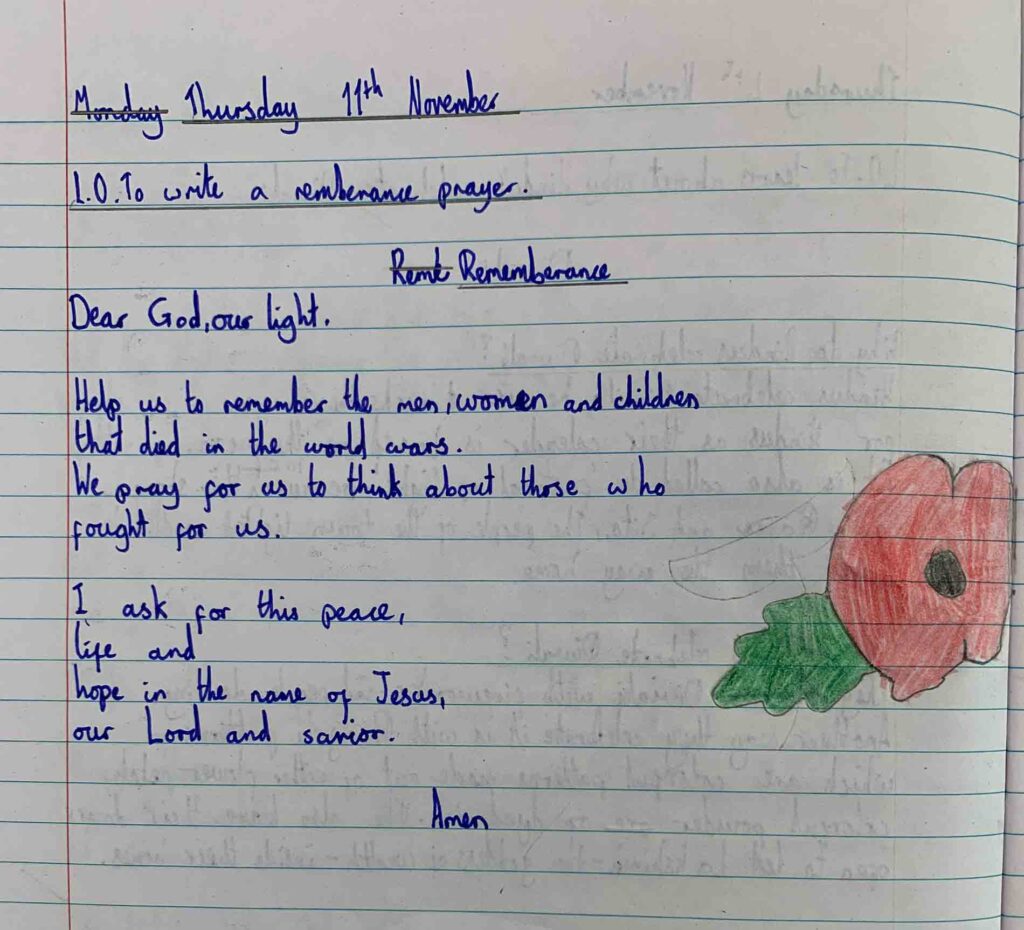 Monday Thursday 11th November
L.O. To write a remberance prayer.
Remt Rememberance
Dear God, our light.
Help us to remember the men, women and children
that died in the world wars.
We pray for us to think about those who
fought for us.
I ask for this peace,
life and
hope in the name of Jesus,
our Lord and savior.
Amen